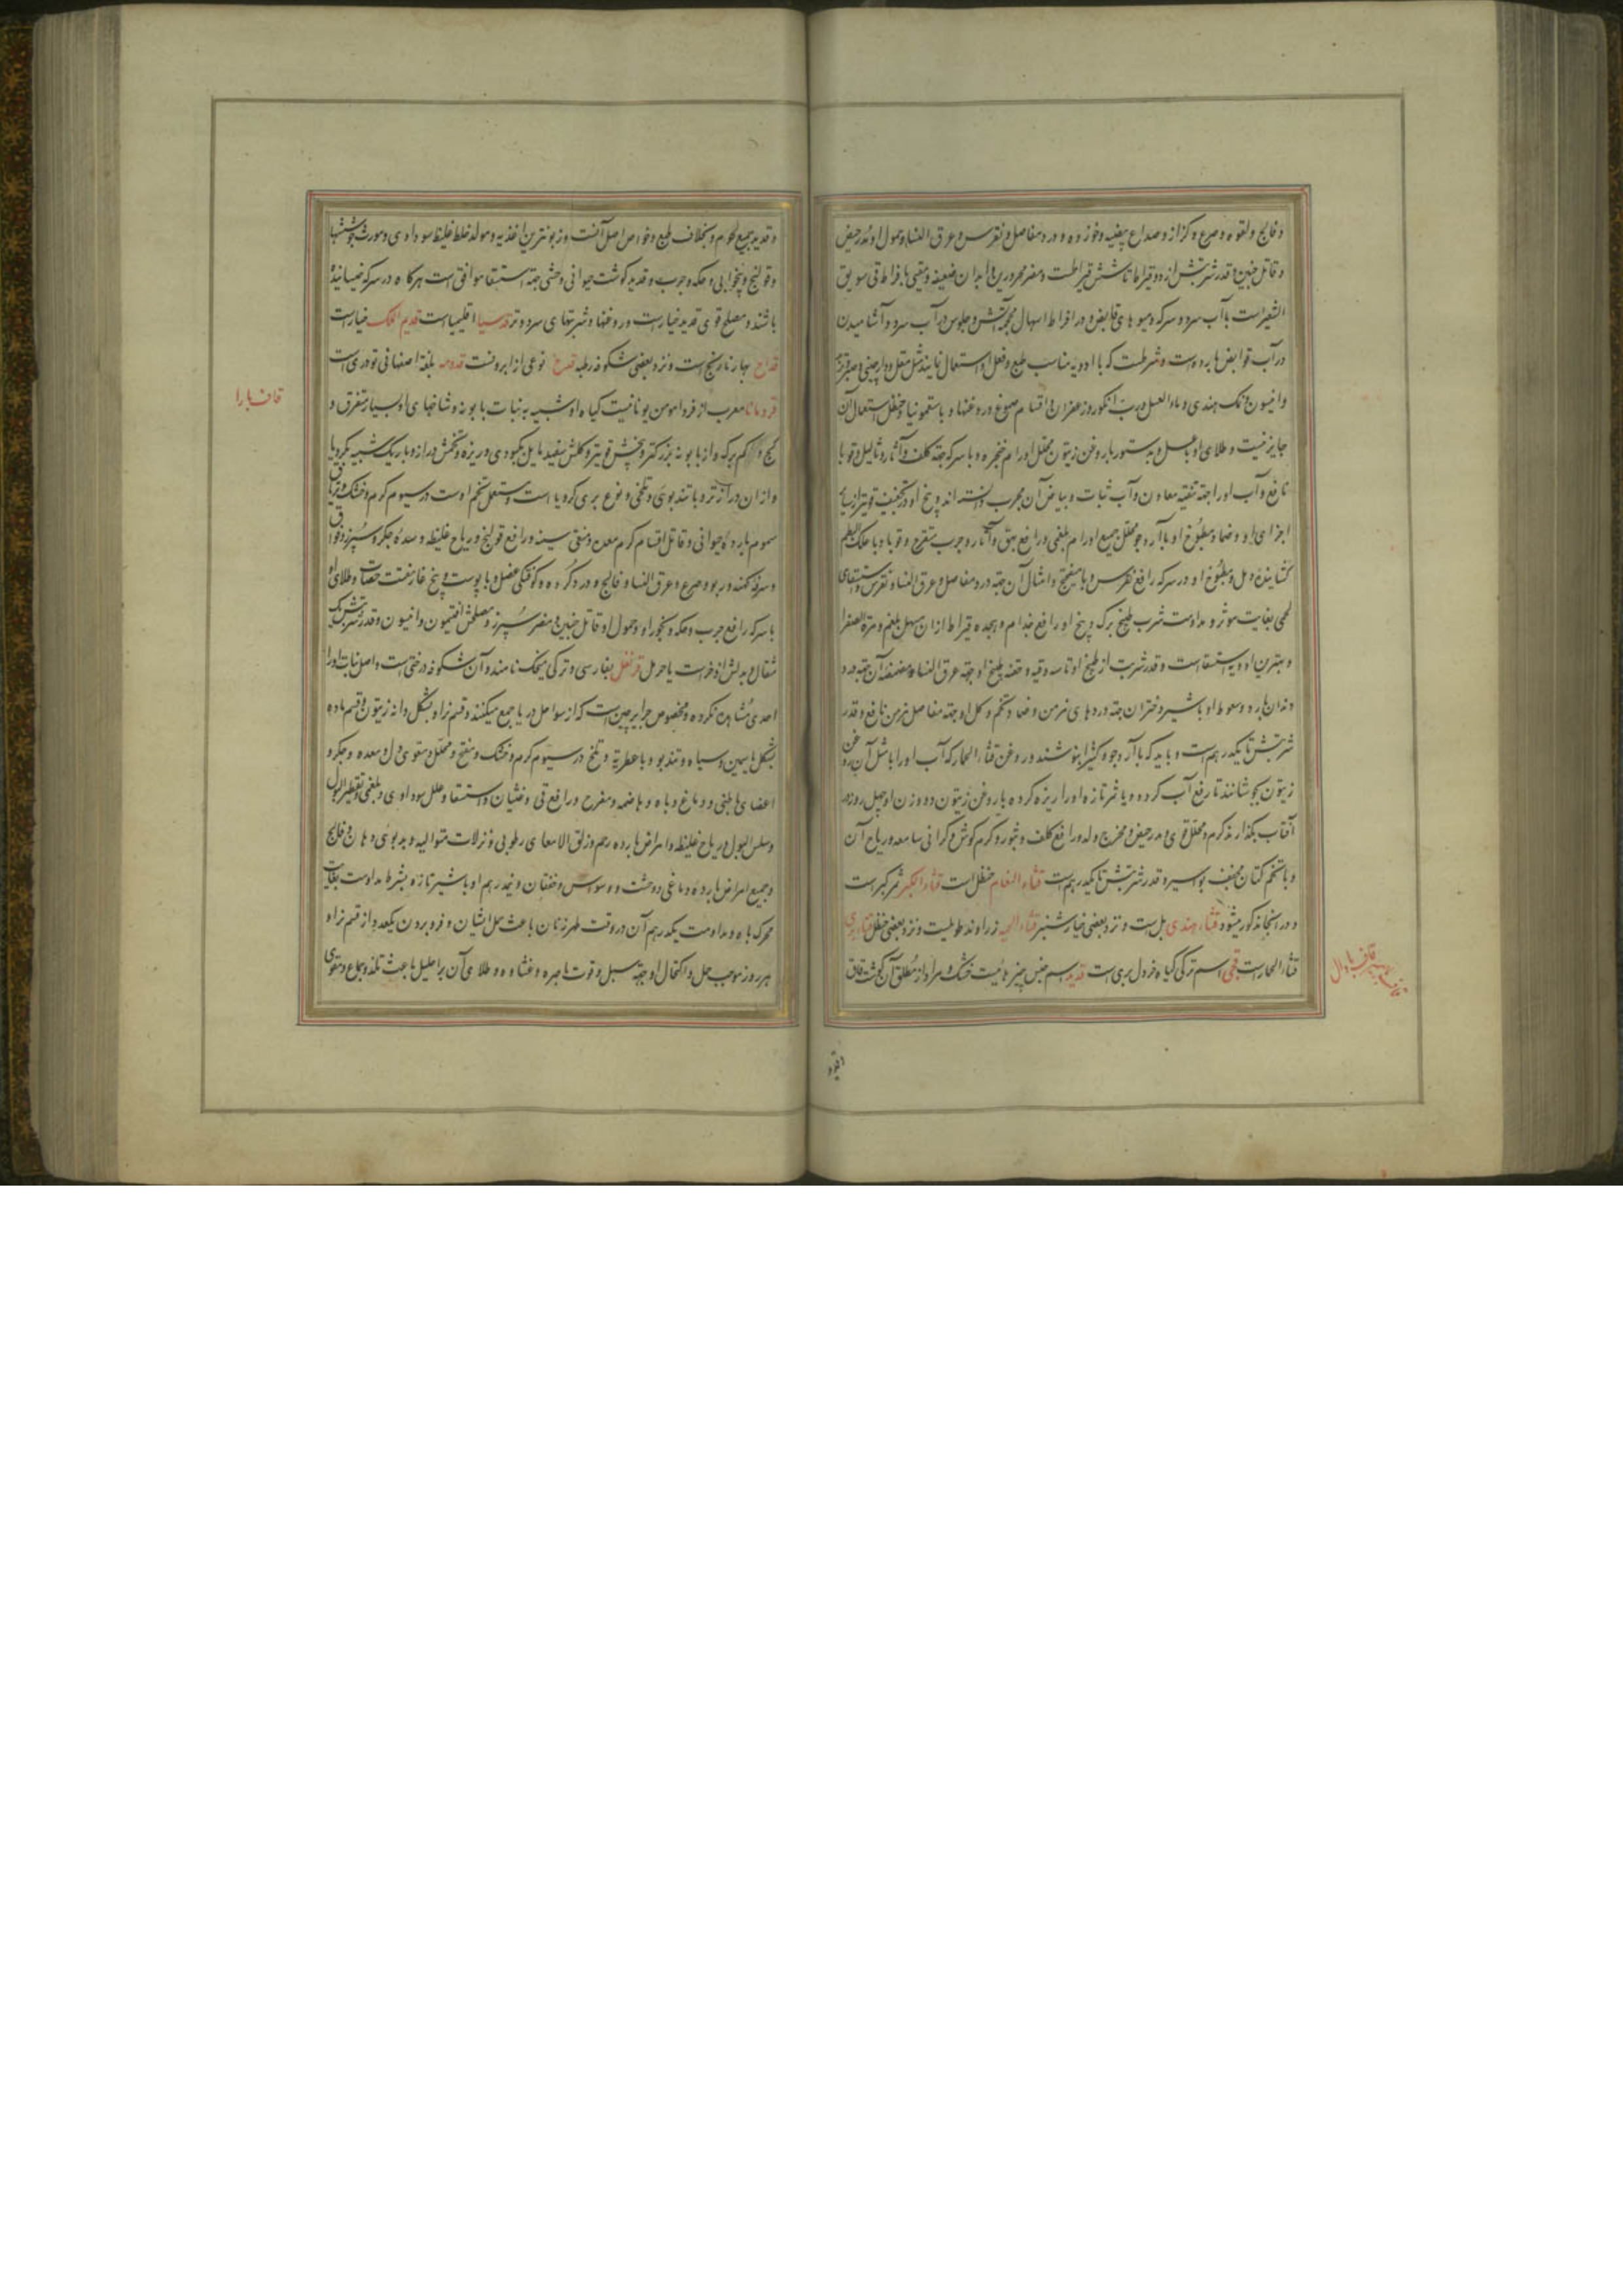 و فالج و لقوه و صرع و کزاز و صداع بیضیه و خوزه و درد مفاصل و نقرس و عرق النسا و حمول او مدر حیض
و قاتل جنین و قدر شربتش از دو قیراط تا شش قیراطست و مضر محرورین و ابدان ضعیفه و مقیی بافراط قی سویق
الشعیر است با آب سرد و سرکه و میوهای قابض و در افراط اسهال محجمه آتش و جلوس در آب سرد و آشامیدن
در آب قوابض بارده است و شرطست که با ادویه مناسب طبع و فعل او استعمال نمایند مثل مقل و دارچینی و صبر
و انیسون و نمک هندی و ماء العسل و رب انگور و زعفران و اقسام صموغ و روغنها و با سقمونیا و حنظل استعمال آن
جایز نیست و طلای او با عسل و بدستور با روغن زیتون محلل اورام حنجره و با سرکه جهة کلف و آثار و ثالیل و قوبا
نافع و آب او را جهة تنقیه معاون و آب شبات و بیاض آن مجرب دانسته اند و بیخ او در تجفیف قویتر از سایر
اجزای او و ضماد مطبوخ او با آرد جو محلل جمیع اورام بلغمی و رافع بهق و آثار و جرب متقرح و قوبا و با علک البطم
گشاینده دمل و مطبوخ او در سرکه رافع نقرس و با میفختج و امثال آن جهة درد مفاصل و عرق النسا و نقرس و استسقای
لحمی بغایت موثر و مداومت شرب طبیخ برگ و بیخ او رافع جذام و هیجده قیراط از آن مسهل بلغم و مرة الصفرا
و بهترین ادویه استسقاست و قدر شربت از طبیخ او تا سه وقیه و حقنه بطبیخ او جهة عرق النسا و مضمضه آن جهة درد
دندان بارد و سعوط او با شیر دختران جهة دردهای مزمن و ضماد تخم و کل او جهة مفاصل مزمن نافع و قدر
شربتش تا یکدرهم است و باید که با آرد جو و کتیرا بنوشند و روغن قثاء الحمار که آب او را با مثل آن روغن
زیتون بجوشانند تا رفع آب کرده و یا ثمر تازه او را ریزه کرده با روغن زیتون دو وزن او چهل روز در
آفتاب بگذارند گرم و محلل قوی و مدر حیض و مخرج ولد و رافع کلف و بثور و کرم گوش و گرانی سامعه و ریاح آن
و با تخم کتان مجفف بواسیر و قدر شربتش تا یکدرهم است قثاء النعام حنظل است قثاء الکبر ثمر کبر است
و در آنجا مذکور میشود قثاء هندی بل است و نزد بعضی خیار شنبر قثاء الحیه زراوند طویلست و نزد بعضی حنظل قثاء بری
قثاء الحمار است قچی اسم ترکی گیاه خردل بری است قدید اسم جنس چیزهائیست خشک و مراد از مطلق آن گوشت قاق
قاف با دال
و قدید جمیع لحوم و بخلاف طبع و خواص اصل آنست و زبونترین اغذیه و مولد خلط غلیظ سوداوی و مورث
و قولنج و بیخوابی و حکه و جرب و قدید گوشت حیوانی وحشی جهة استسقا موافق است هرگاه در سرکه خیسانیده
باشند و مصلح قوی قدید خیار است و روغنها و شربتهای سرد و تر قدسیا اقلیمیاست قدیم الملک خیار است
قداح بهار نارنج است و نزد بعضی شکوفه رطبه قدح نوعی از ابرونست قدومه بلغة اصفهانی تودری است
قردمانا معرب از قرداموس یونانیست گیاه او شبیه به نبات بابونه و شاخهای او بسیار متفرق و
کج و کم برگ و از بابونه بزرگتر و بیخش قویتر و کلش سفید مایل بکبودی و ریزه و تخمش دراز و باریک شبیه بکرویا
و از آن درازتر و با تندبوئی و تلخی و نوع بری کرویا است و مستعمل تخم اوست در سیوم گرم و خشک و تریاق
سموم بارده حیوانی و قاتل اقسام کرم معده و منقی سینه و رافع قولنج و ریاح غلیظه و سده جگر و سپرز و فواق
و سرفه کهنه و ربو و صرع و عرق النسا و فالج و درد گرده و کوفتگی عضل و با پوست و بیخ غار مفتت حصات و طلای او
با سرکه رافع جرب و حکه و بخور او و حمول او قاتل جنین و مضر سپرز و مصلحش افتیمون و انیسون و قدر شربتش یک
مثقال و بدلش اذخر است یا حرمل قرنفل بفارسی و ترکی میخک نامند و آن شکوفه درختی است و اصل نبات او را
احدی مشاهده نکرده و مخصوص جزایر چین است که از سواحل دریا جمع میکنند و قسم نر او بشکل دانه زیتون و قسم ماده
بشکل یاسمین و سیاه و تندبو و با عطریة و تلخ در سیوم گرم و خشک و مفتح و محلل و مقوی دل و معده و جگر و
اعضای باطنی و دماغ و باه و هاضمه و مفرح و رافع قی و غثیان و استسقا و علل سوداوی و بلغمی و تقطیر البول
و سلس البول و ریاح غلیظه و امراض بارده رحم و زلق الامعای رطوبی و نزلات متوالیه و بدبوئی دهان و فالج
و جمیع امراض بارده دماغی و وحشت و وسواس و خفقان و نیمدرهم او با شیر تازه بشرط مداومت بغایت
محرک باه و مداومت یکدرهم آن در وقت طهر زنان باعث حمل ایشان و فرو بردن یکعدد از قسم نر او
هر روز موجب حمل و اکتحال او جهة سبل و قوت باصره و غشاوه و طلای آن بر احلیل باعث تلذذ جماع و مقوی
قاف با را